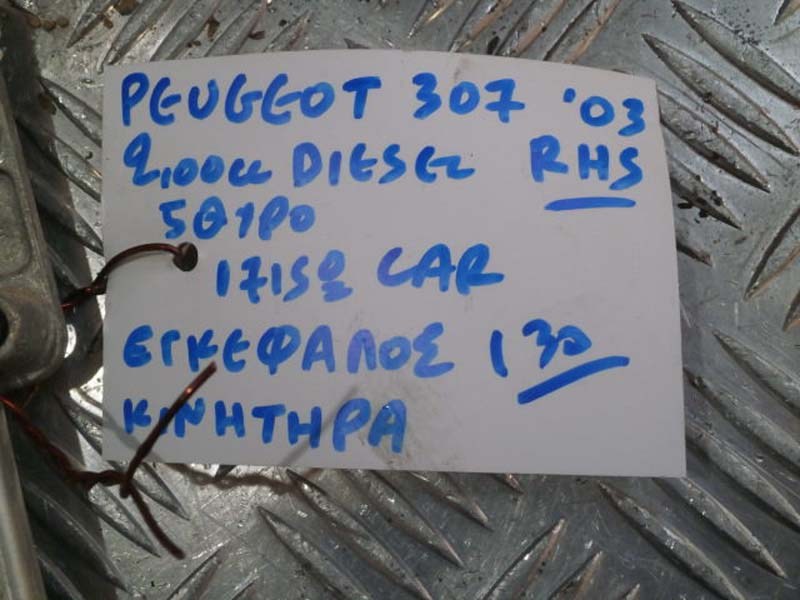 PEUGEOT 307 '03
2,00cc DIESEL RHS
5ΘΥΡΟ
17159 CAR
ΕΓΚΕΦΑΛΟΣ 130
ΚΙΝΗΤΗΡΑ